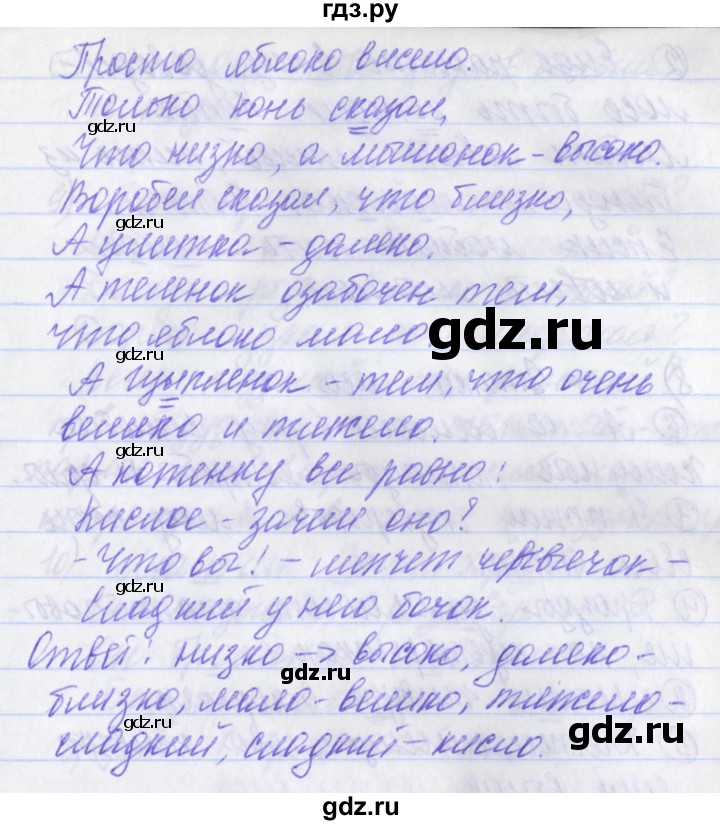 гдз.ру
Просто яблоко висело.
Только конь сказал,
gdz.ru
Что низко, а мышонок - высоко.
Воробей сказал, что близко,
gdz.ru
А улитка - далеко.
gdz.ru
А теленок озабочен тем,
что яблоко мало.
gdz.ru
gdz.ru
А цыпленок - тем, что очень
велико и тяжело.
gdz.ru
А котенку все равно!
Кислое - зачем оно?
gdz.ru
- Что вы! - шепчет червячок -
gdz.ru
Сладкий у него бочок.
Ответ: низко -> высоко, далеко -
gdz.ru
близко, мало - велико, тяжело -
gdz.ru
сладкий, сладкий - кисло.
gdz.ru
gdz.ru